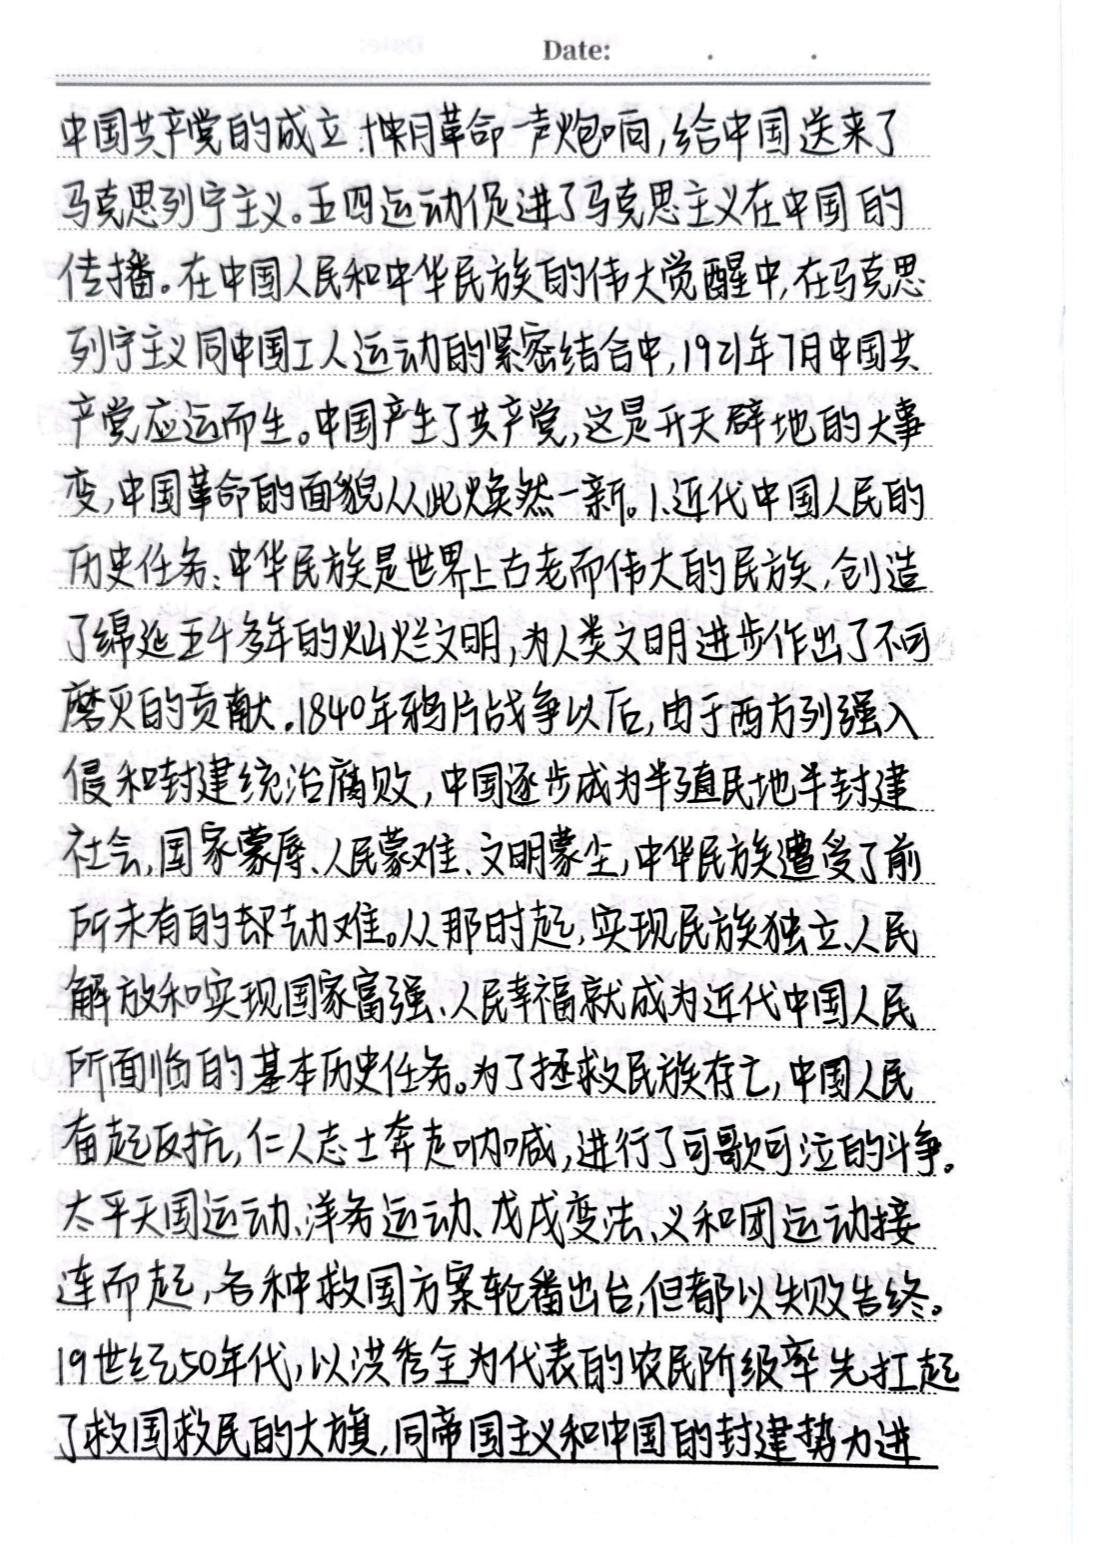 Date: . .
中国共产党的成立:十月革命一声炮响,给中国送来了
马克思列宁主义。五四运动促进了马克思主义在中国的
传播。在中国人民和中华民族的伟大觉醒中,在马克思
列宁主义同中国工人运动的紧密结合中,1921年7月中国共
产党应运而生。中国产生了共产党,这是开天辟地的大事
变,中国革命的面貌从此焕然一新。1、近代中国人民的
历史任务:中华民族是世界上古老而伟大的民族,创造
了绵延五千多年的灿烂文明,为人类文明进步作出了不可
磨灭的贡献。1840年鸦片战争以后,由于西方列强入
侵和封建统治腐败,中国逐步成为半殖民地半封建
社会,国家蒙辱、人民蒙难、文明蒙尘,中华民族遭受了前
所未有的劫难。从那时起,实现民族独立、人民
解放和实现国家富强、人民幸福就成为近代中国人民
所面临的基本历史任务。为了拯救民族存亡,中国人民
奋起反抗,仁人志士奔走呐喊,进行了可歌可泣的斗争。
太平天国运动、洋务运动、戊戌变法、义和团运动接
连而起,各种救国方案轮番出台,但都以失败告终。
19世纪50年代,以洪秀全为代表的农民阶级率先扛起
了救国救民的大旗,同帝国主义和中国的封建势力进